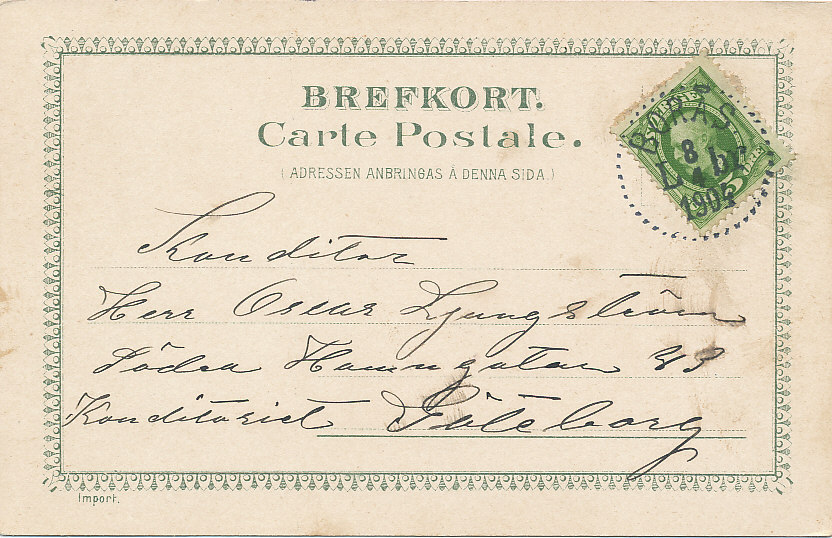 BREFKORT.
Carte Postale.
(ADRESSEN ANBRINGAS Å DENNA SIDA.)
BORÅS
8
4
L br
1905
5 ÖRE
Konditor
Herr Oscar Ljungström
Södra Hamngatan 33
Konditoriet Göteborg
Import.